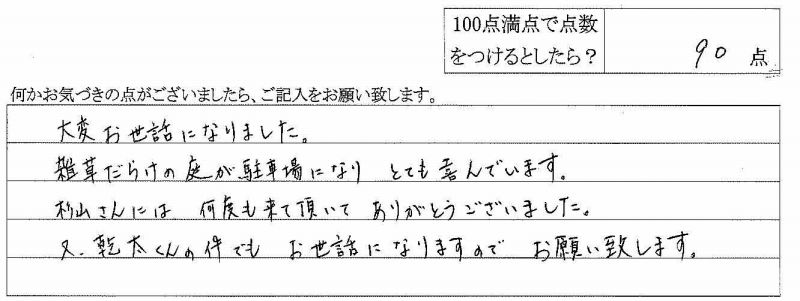 100点満点で点数
をつけるとしたら？
90 点
何かお気づきの点がございましたら、ご記入をお願い致します。
大変お世話になりました。
雑草だらけの庭が駐車場になり とても喜んでいます。
杉山さんには 何度も来て頂いて ありがとうございました。
又、乾太くんの件でも お世話になりますので お願い致します。